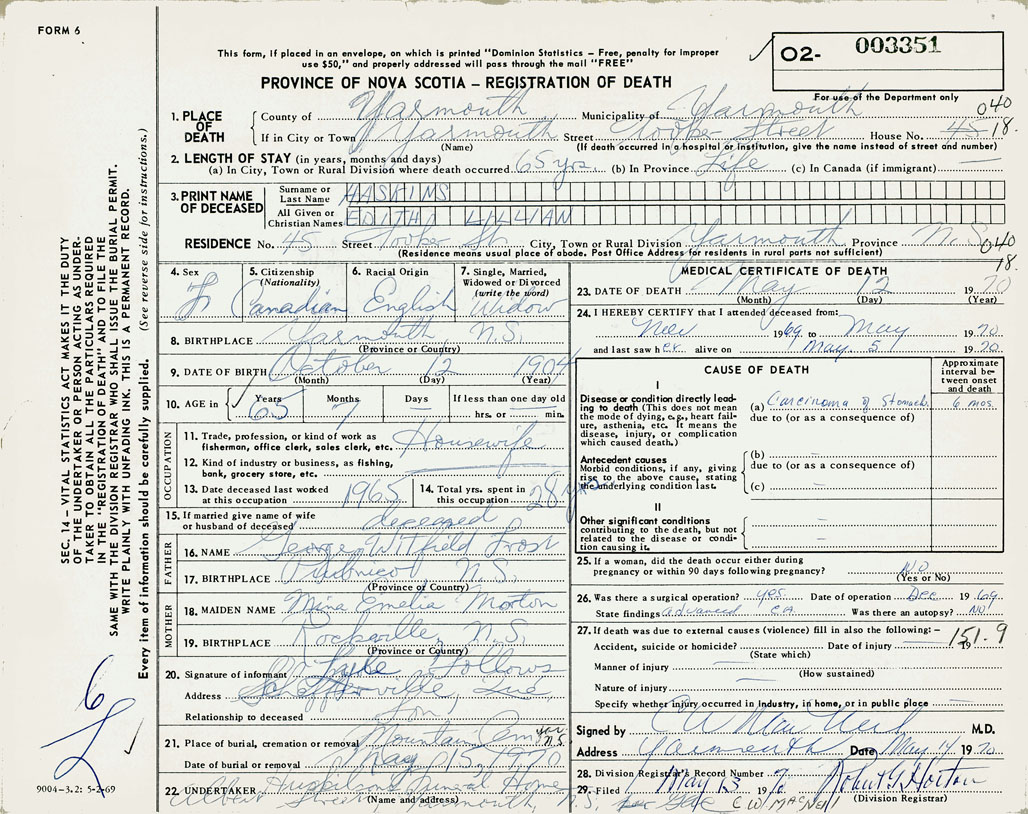 FORM 6
This form, if placed in an envelope, on which is printed "Dominion Statistics – Free, penalty for improper
use $50," and properly addressed will pass through the mail "FREE"
O2- 003351
For use of the Department only
PROVINCE OF NOVA SCOTIA – REGISTRATION OF DEATH
1. PLACE OF DEATH
County of Yarmouth Municipality of Yarmouth 040
If in City or Town Yarmouth Street Tooker Street House No. 45 18.
(Name) (If death occurred in a hospital or institution, give the name instead of street and number)
2. LENGTH OF STAY (in years, months and days)
(a) In City, Town or Rural Division where death occurred 65 yrs. (b) In Province Life (c) In Canada (if immigrant) —
3. PRINT NAME OF DECEASED
Surname or Last Name HASKINS
All Given or Christian Names EDITH LILLIAN
RESIDENCE No. 45 Street Tooker St. City, Town or Rural Division Yarmouth Province N.S. 040
(Residence means usual place of abode. Post Office Address for residents in rural parts not sufficient) 18.
4. Sex F
5. Citizenship (Nationality) Canadian
6. Racial Origin English
7. Single, Married, Widowed or Divorced (write the word) Widow
8. BIRTHPLACE Yarmouth N.S.
(Province or Country)
9. DATE OF BIRTH October 12 1904
(Month) (Day) (Year)
10. AGE in Years Months Days If less than one day old
65 7 — hrs. or min.
OCCUPATION
11. Trade, profession, or kind of work as fisherman, office clerk, sales clerk, etc. Housewife
12. Kind of industry or business, as fishing, bank, grocery store, etc.
13. Date deceased last worked at this occupation 1965
14. Total yrs. spent in this occupation 28 yrs
15. If married give name of wife or husband of deceased deceased
FATHER
16. NAME George Witfield Frost
17. BIRTHPLACE Pubnico N.S.
(Province or Country)
MOTHER
18. MAIDEN NAME Mina Emelia Morton
19. BIRTHPLACE Rockville, N.S.
(Province or Country)
20. Signature of informant Follows
Address Schefferville, Que,
Relationship to deceased Son
21. Place of burial, cremation or removal Mountain Cem Yar. N.S.
Date of burial or removal May 15, 1970
22. UNDERTAKER Huskilson Funeral Home
(Name and address)
Albert Street, Yarmouth, N.S.
MEDICAL CERTIFICATE OF DEATH
23. DATE OF DEATH May 12 1970
(Month) (Day) (Year)
24. I HEREBY CERTIFY that I attended deceased from:
Nov 1969 to May 1970
and last saw her alive on May 5 1970
CAUSE OF DEATH
Approximate interval between onset and death
I
Disease or condition directly leading to death (This does not mean the mode of dying, e.g., heart failure, asthenia, etc. It means the disease, injury, or complication which caused death.)
(a) Carcinoma of Stomach 6 mos.
due to (or as a consequence of)
Antecedent causes
Morbid conditions, if any, giving rise to the above cause, stating the underlying condition last.
(b) —
due to (or as a consequence of)
(c) —
II
Other significant conditions contributing to the death, but not related to the disease or condition causing it.
25. If a woman, did the death occur either during pregnancy or within 90 days following pregnancy? NO
(Yes or No)
26. Was there a surgical operation? yes. Date of operation Dec 1969.
State findings advanced CA Was there an autopsy? NO
27. If death was due to external causes (violence) fill in also the following:–
Accident, suicide or homicide? Date of injury 19 151.9
(State which)
Manner of injury
(How sustained)
Nature of injury
Specify whether injury occurred in industry, in home, or in public place
Signed by C W MacNeil M.D.
Address Yarmouth Date May 14 1970
28. Division Registrar's Record Number
29. Filed May 13 1970 Robert G Horton
(Division Registrar)
C W MACNEIL
SEC. 14 – VITAL STATISTICS ACT MAKES IT THE DUTY
OF THE UNDERTAKER OR PERSON ACTING AS UNDER-
TAKER TO OBTAIN ALL THE PARTICULARS REQUIRED
IN THE "REGISTRATION OF DEATH" AND TO FILE THE
SAME WITH THE DIVISION REGISTRAR WHO SHALL ISSUE THE BURIAL PERMIT.
WRITE PLAINLY WITH UNFADING INK. THIS IS A PERMANENT RECORD.
Every item of information should be carefully supplied. (See reverse side for instructions.)
6
9004–3.2: 5-2-69